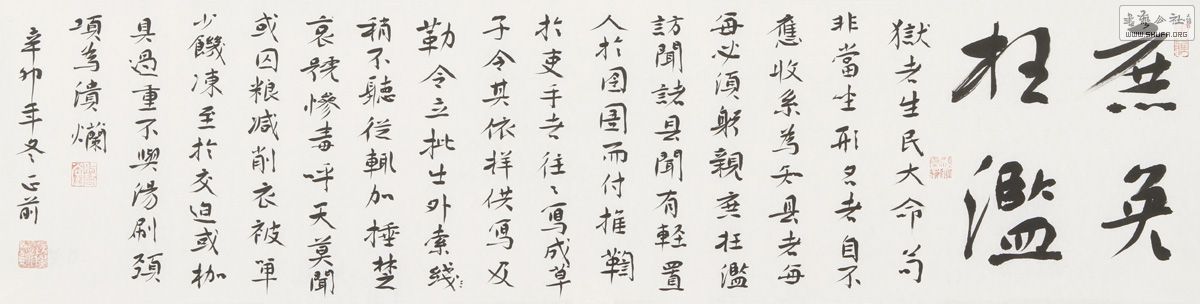 庶免
枉濫
獄者生民大命苟
非當坐刑名者自不
應收系為知县者每
每必須躬親庶枉濫
訪聞諸县聞有軽置
人於囹圄而付推鞫
於吏手者往〻寫成草
子令其依样供写及
勒令立批出外索錢
稍不聽從輒加捶楚
哀號慘毒呼天莫聞
或囚粮减削衣被单
少饑凍至於交迫或枷
具過重不與湯刷頸
項為潰爛
辛卯年冬正前
書藝公社
WWW.SHUFA.ORG